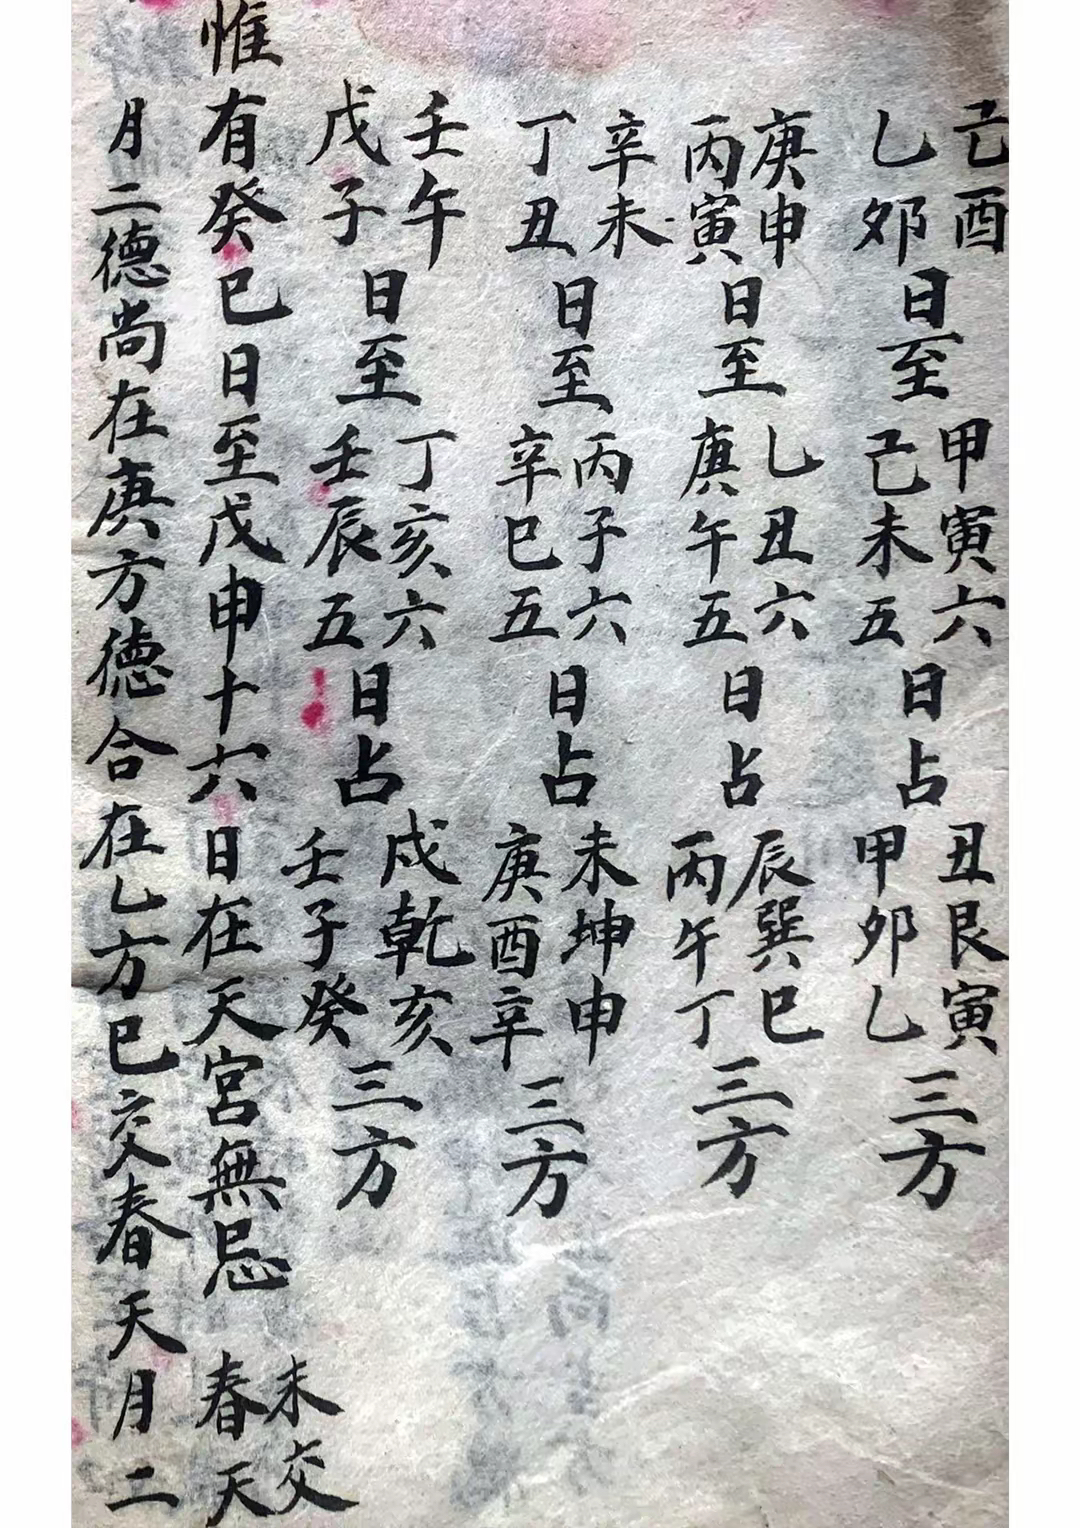 己酉乙卯日至甲寅六己未五日占丑艮寅甲卯乙三方
庚申丙寅日至乙丑六庚午五日占辰巽巳丙午丁三方
辛未丁丑日至丙子六辛巳五日占未坤申庚酉辛三方
壬午戊子日至丁亥六壬辰五日占戌乾亥壬子癸三方
惟有癸巳日至戊申十六日在天宮無忌 未交春天
月二德尚在庚方德合在乙方巳交春天月二